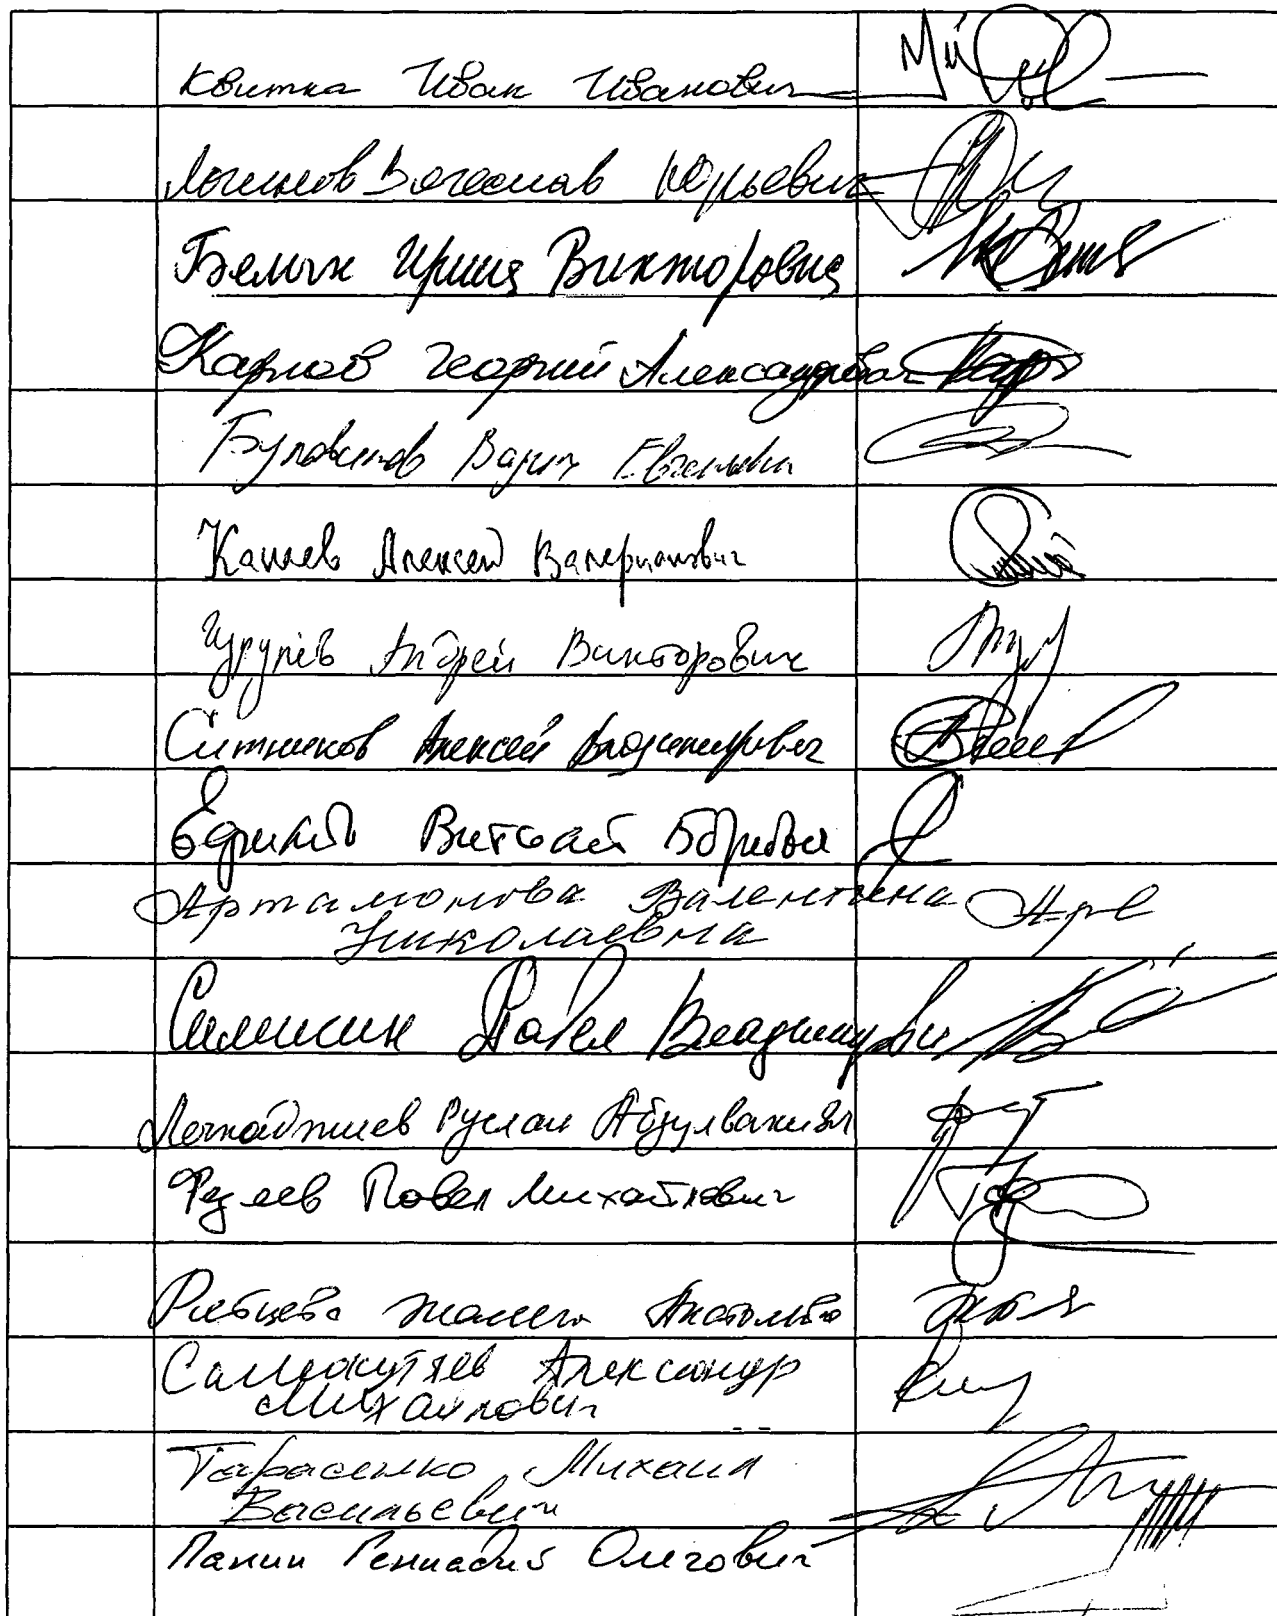 Квитка Иван Иванович
Логинов Вячеслав Юрьевич
Белых Ирина Викторовна
Карлов Георгий Александрович
Булавинов Вадим Евгеньевич
Канаев Алексей Валерианович
Гурулёв Андрей Викторович
Ситников Алексей Владимирович
Ефимов Виталий Борисович
Артамонова Валентина
Николаевна
Симигин Павел Владимирович
Лечхаджиев Руслан Абдулвахидович
Федяев Павел Михайлович
Рябцева Жанна Анатольевна
Самокутяев Александр
Михайлович
Тарасенко Михаил
Васильевич
Панин Геннадий Олегович